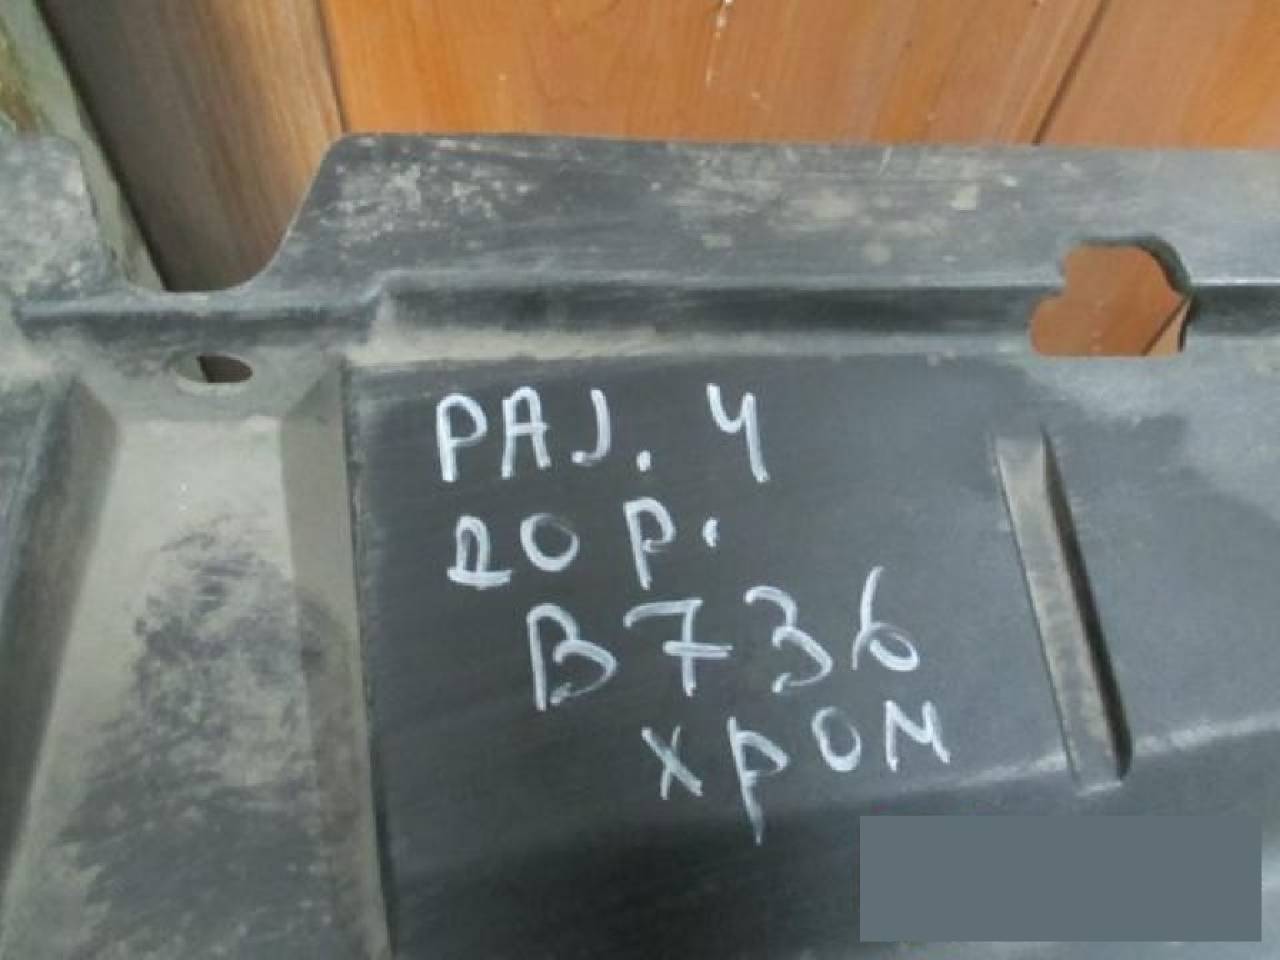 PAJ. 4
20 р.
B736
хром